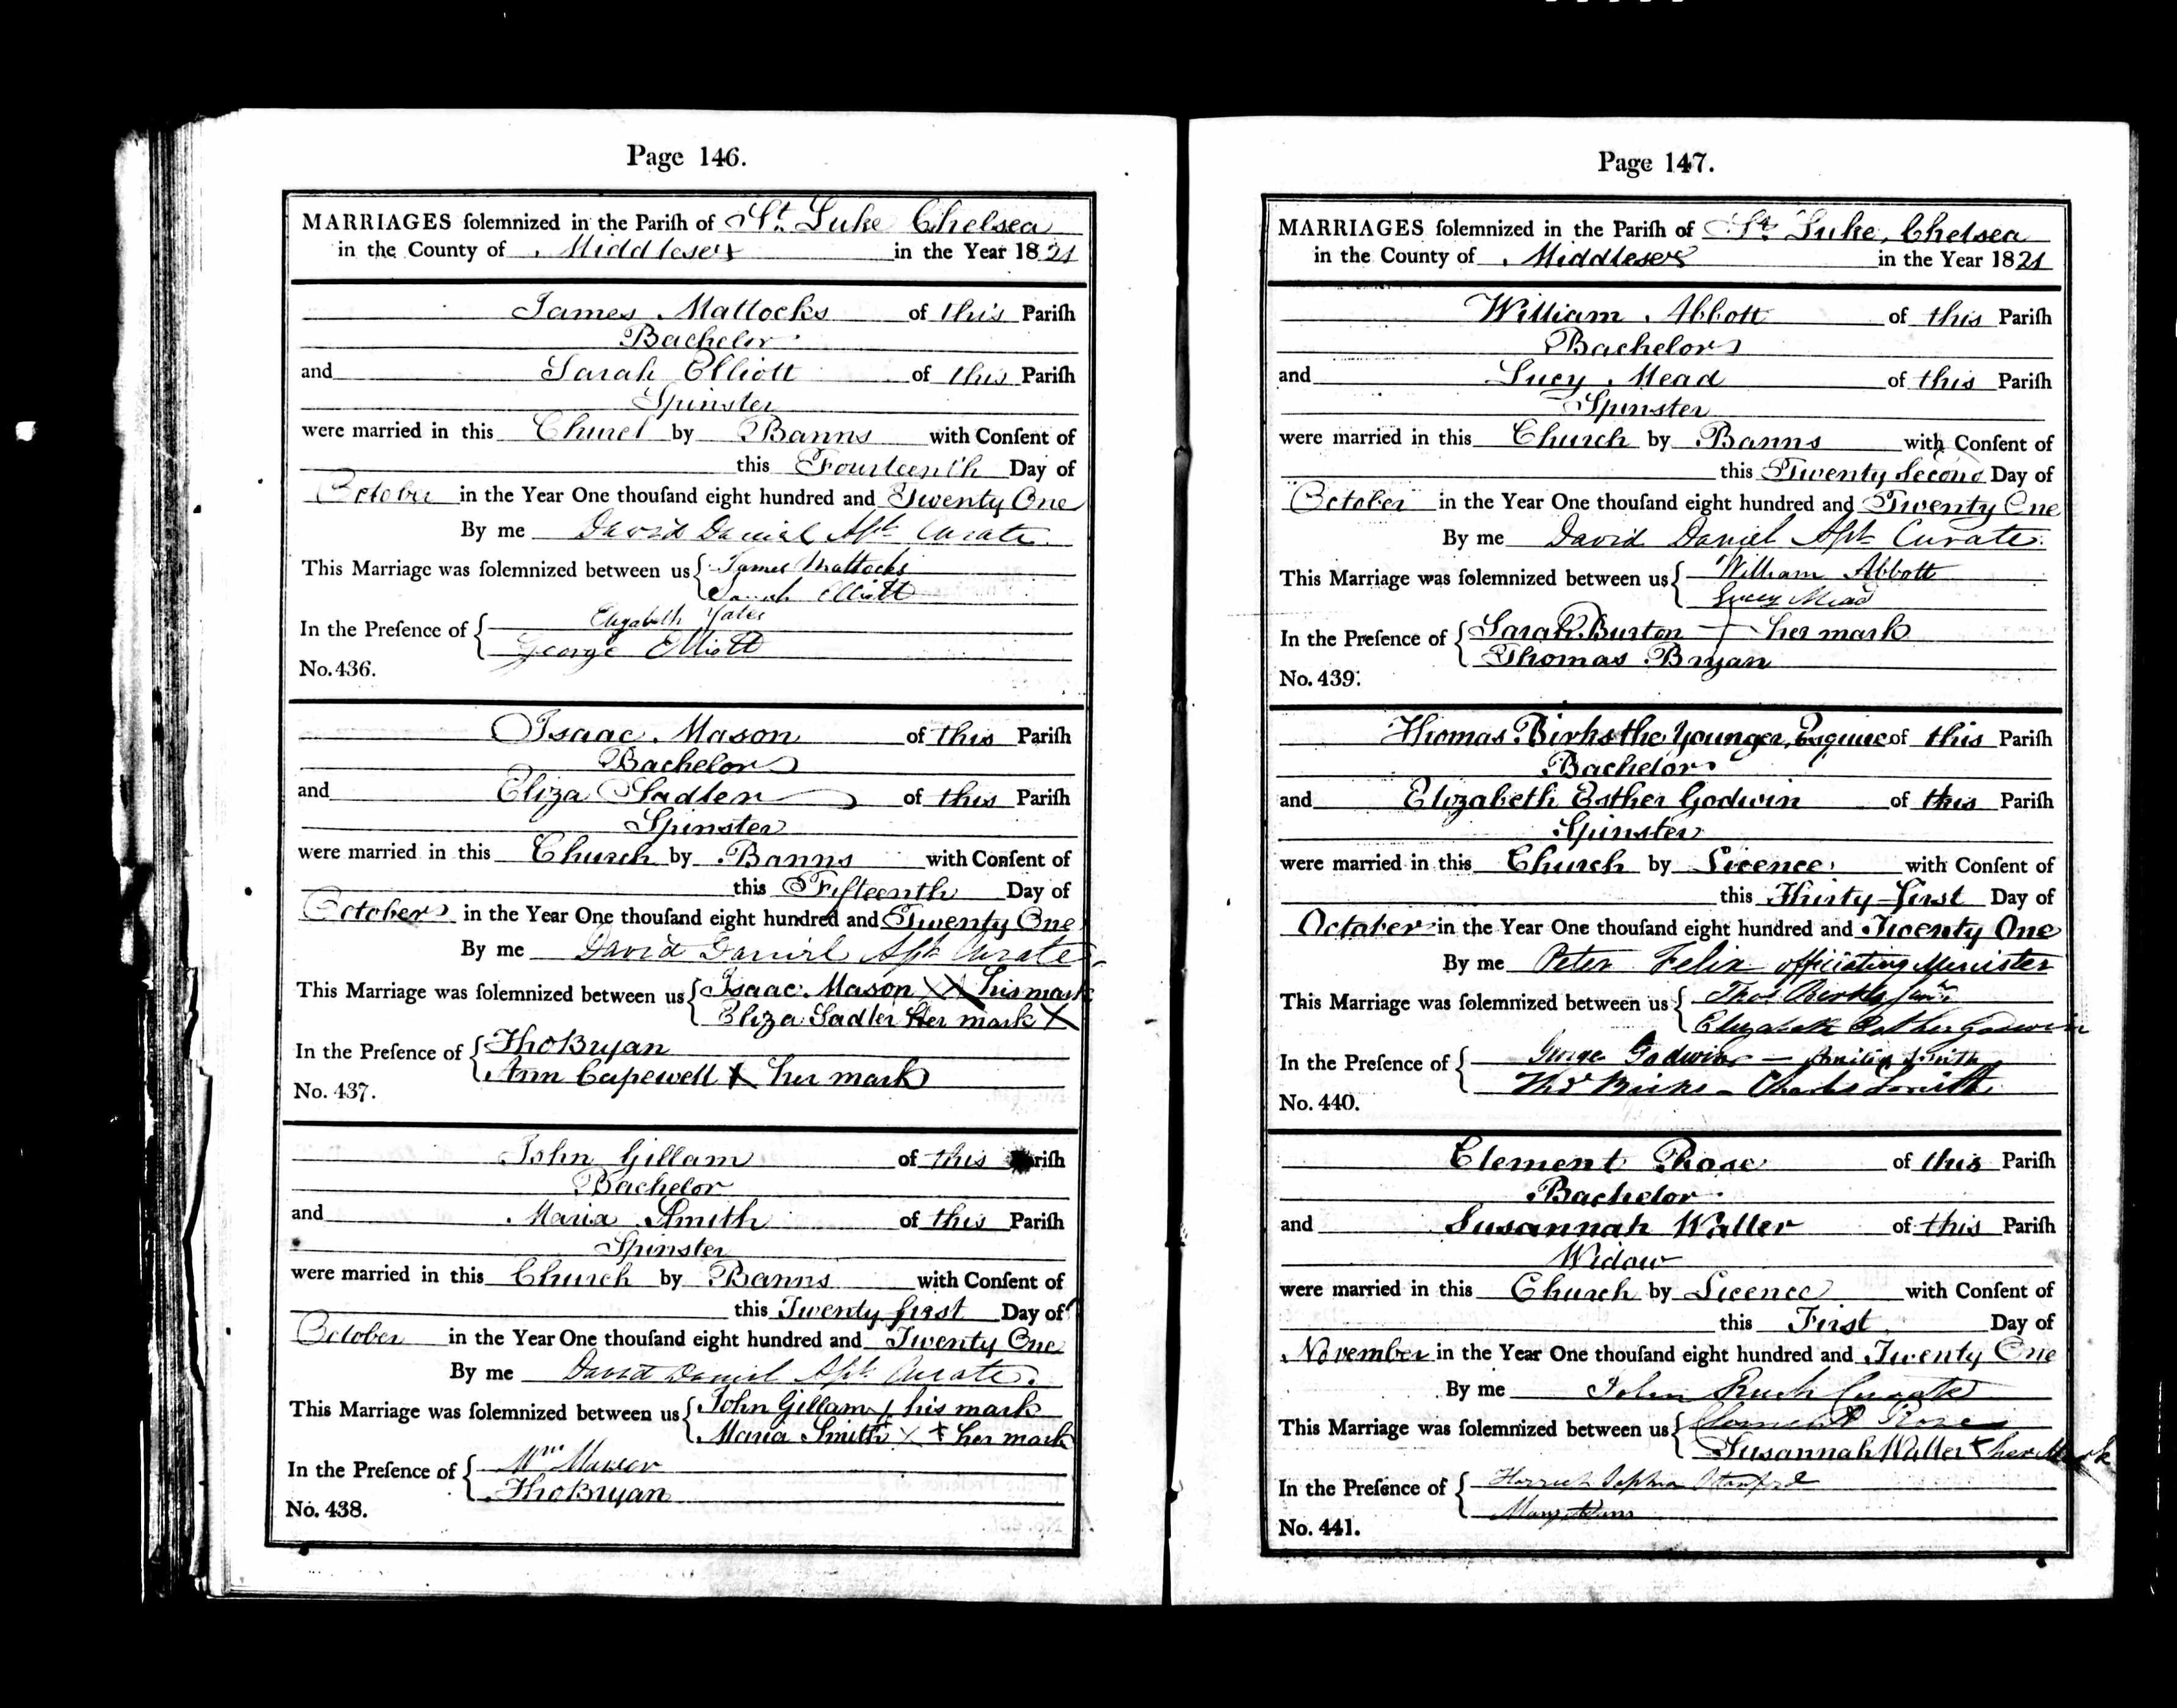 Page 146.
MARRIAGES ſolemnized in the Pariſh of St. Luke Chelsea
in the County of Middlesex in the Year 1821
James Mattocks of this Pariſh
Bachelor
and Sarah Elliott of this Pariſh
Spinster
were married in this Church by Banns with Conſent of
this Fourteenth Day of
October in the Year One thouſand eight hundred and Twenty One
By me David Daniel Aſst Curate
This Marriage was ſolemnized between us { James Mattocks
Sarah Elliott
Elizabeth Yates
In the Preſence of { George Elliott
No. 436.
Isaac Mason of this Pariſh
Bachelor
and Eliza Sadler of this Pariſh
Spinster
were married in this Church by Banns with Conſent of
this Fifteenth Day of
October in the Year One thouſand eight hundred and Twenty One
By me David Daniel Aſst Curate
This Marriage was ſolemnized between us { Isaac Mason X his mark
Eliza Sadler her mark X
In the Preſence of { Tho Bryan
Ann Capewell X her mark
No. 437.
John Gillam of this Pariſh
Bachelor
and Maria Smith of this Pariſh
Spinster
were married in this Church by Banns with Conſent of
this Twenty first Day of
October in the Year One thouſand eight hundred and Twenty One
By me David Daniel Aſst Curate.
This Marriage was ſolemnized between us { John Gillam + his mark
Maria Smith X + her mark
In the Preſence of { Wm
Tho Bryan
No. 438.
Page 147.
MARRIAGES ſolemnized in the Pariſh of St. Luke, Chelsea
in the County of Middlesex in the Year 1821
William Abbott of this Pariſh
Bachelor
and Lucy Mead of this Pariſh
Spinster
were married in this Church by Banns with Conſent of
this Twenty Second Day of
October in the Year One thouſand eight hundred and Twenty One
By me David Daniel Aſst Curate.
This Marriage was ſolemnized between us { William Abbott
Lucy Mead
In the Preſence of { Sarah Burton + her mark
Thomas Bryan
No. 439.
Thomas Birks the Younger, Esquire of this Pariſh
Bachelor
and Elizabeth Esther Godwin of this Pariſh
Spinster
were married in this Church by Licence with Conſent of
this Thirty-first Day of
October in the Year One thouſand eight hundred and Twenty One
By me Peter Felix officiating Minister
This Marriage was ſolemnized between us { Thos Birks Junr.
Elizabeth Esther Godwin
In the Preſence of { George Godwin — Smith
Thos Birks - Charles Smith
No. 440.
Clement Rose of this Pariſh
Bachelor
and Susannah Waller of this Pariſh
Widow
were married in this Church by Licence with Conſent of
this First Day of
November in the Year One thouſand eight hundred and Twenty One
By me John Rush Curate
This Marriage was ſolemnized between us { Clement Rose
Susannah Waller X her Mark
In the Preſence of { Harriet Sophia
Mary
No. 441.